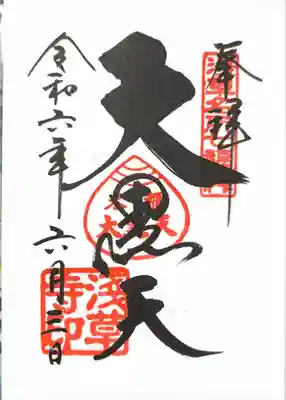 奉拝
浅草名所七福神
大黒天
令和六年六月三日
淺草
寺印